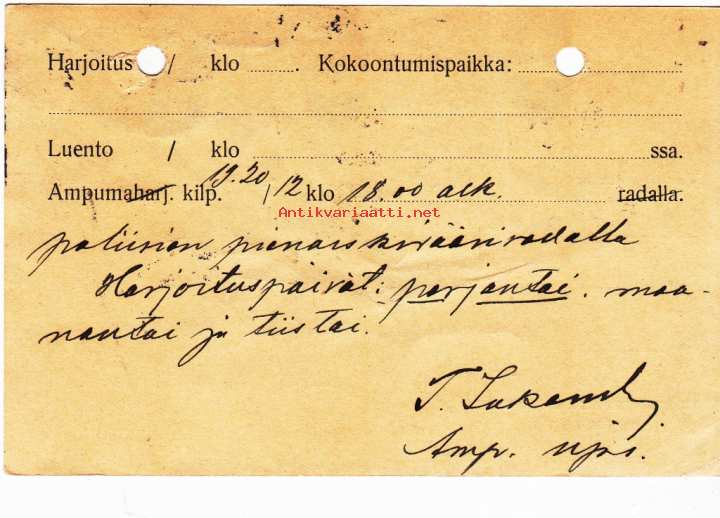 Harjoitus / klo ......... Kokoontumispaikka: ................
Luento / klo ................ ssa.
Ampumaharj. kilp. 19.20/12 klo 18.00 alk. radalla.
Antikvariaatti.net
poliisien pienoiskivääriradalla
Harjoituspäivät: perjantai, maa-
nantai ja tiistai.
T.
Amp. ups.